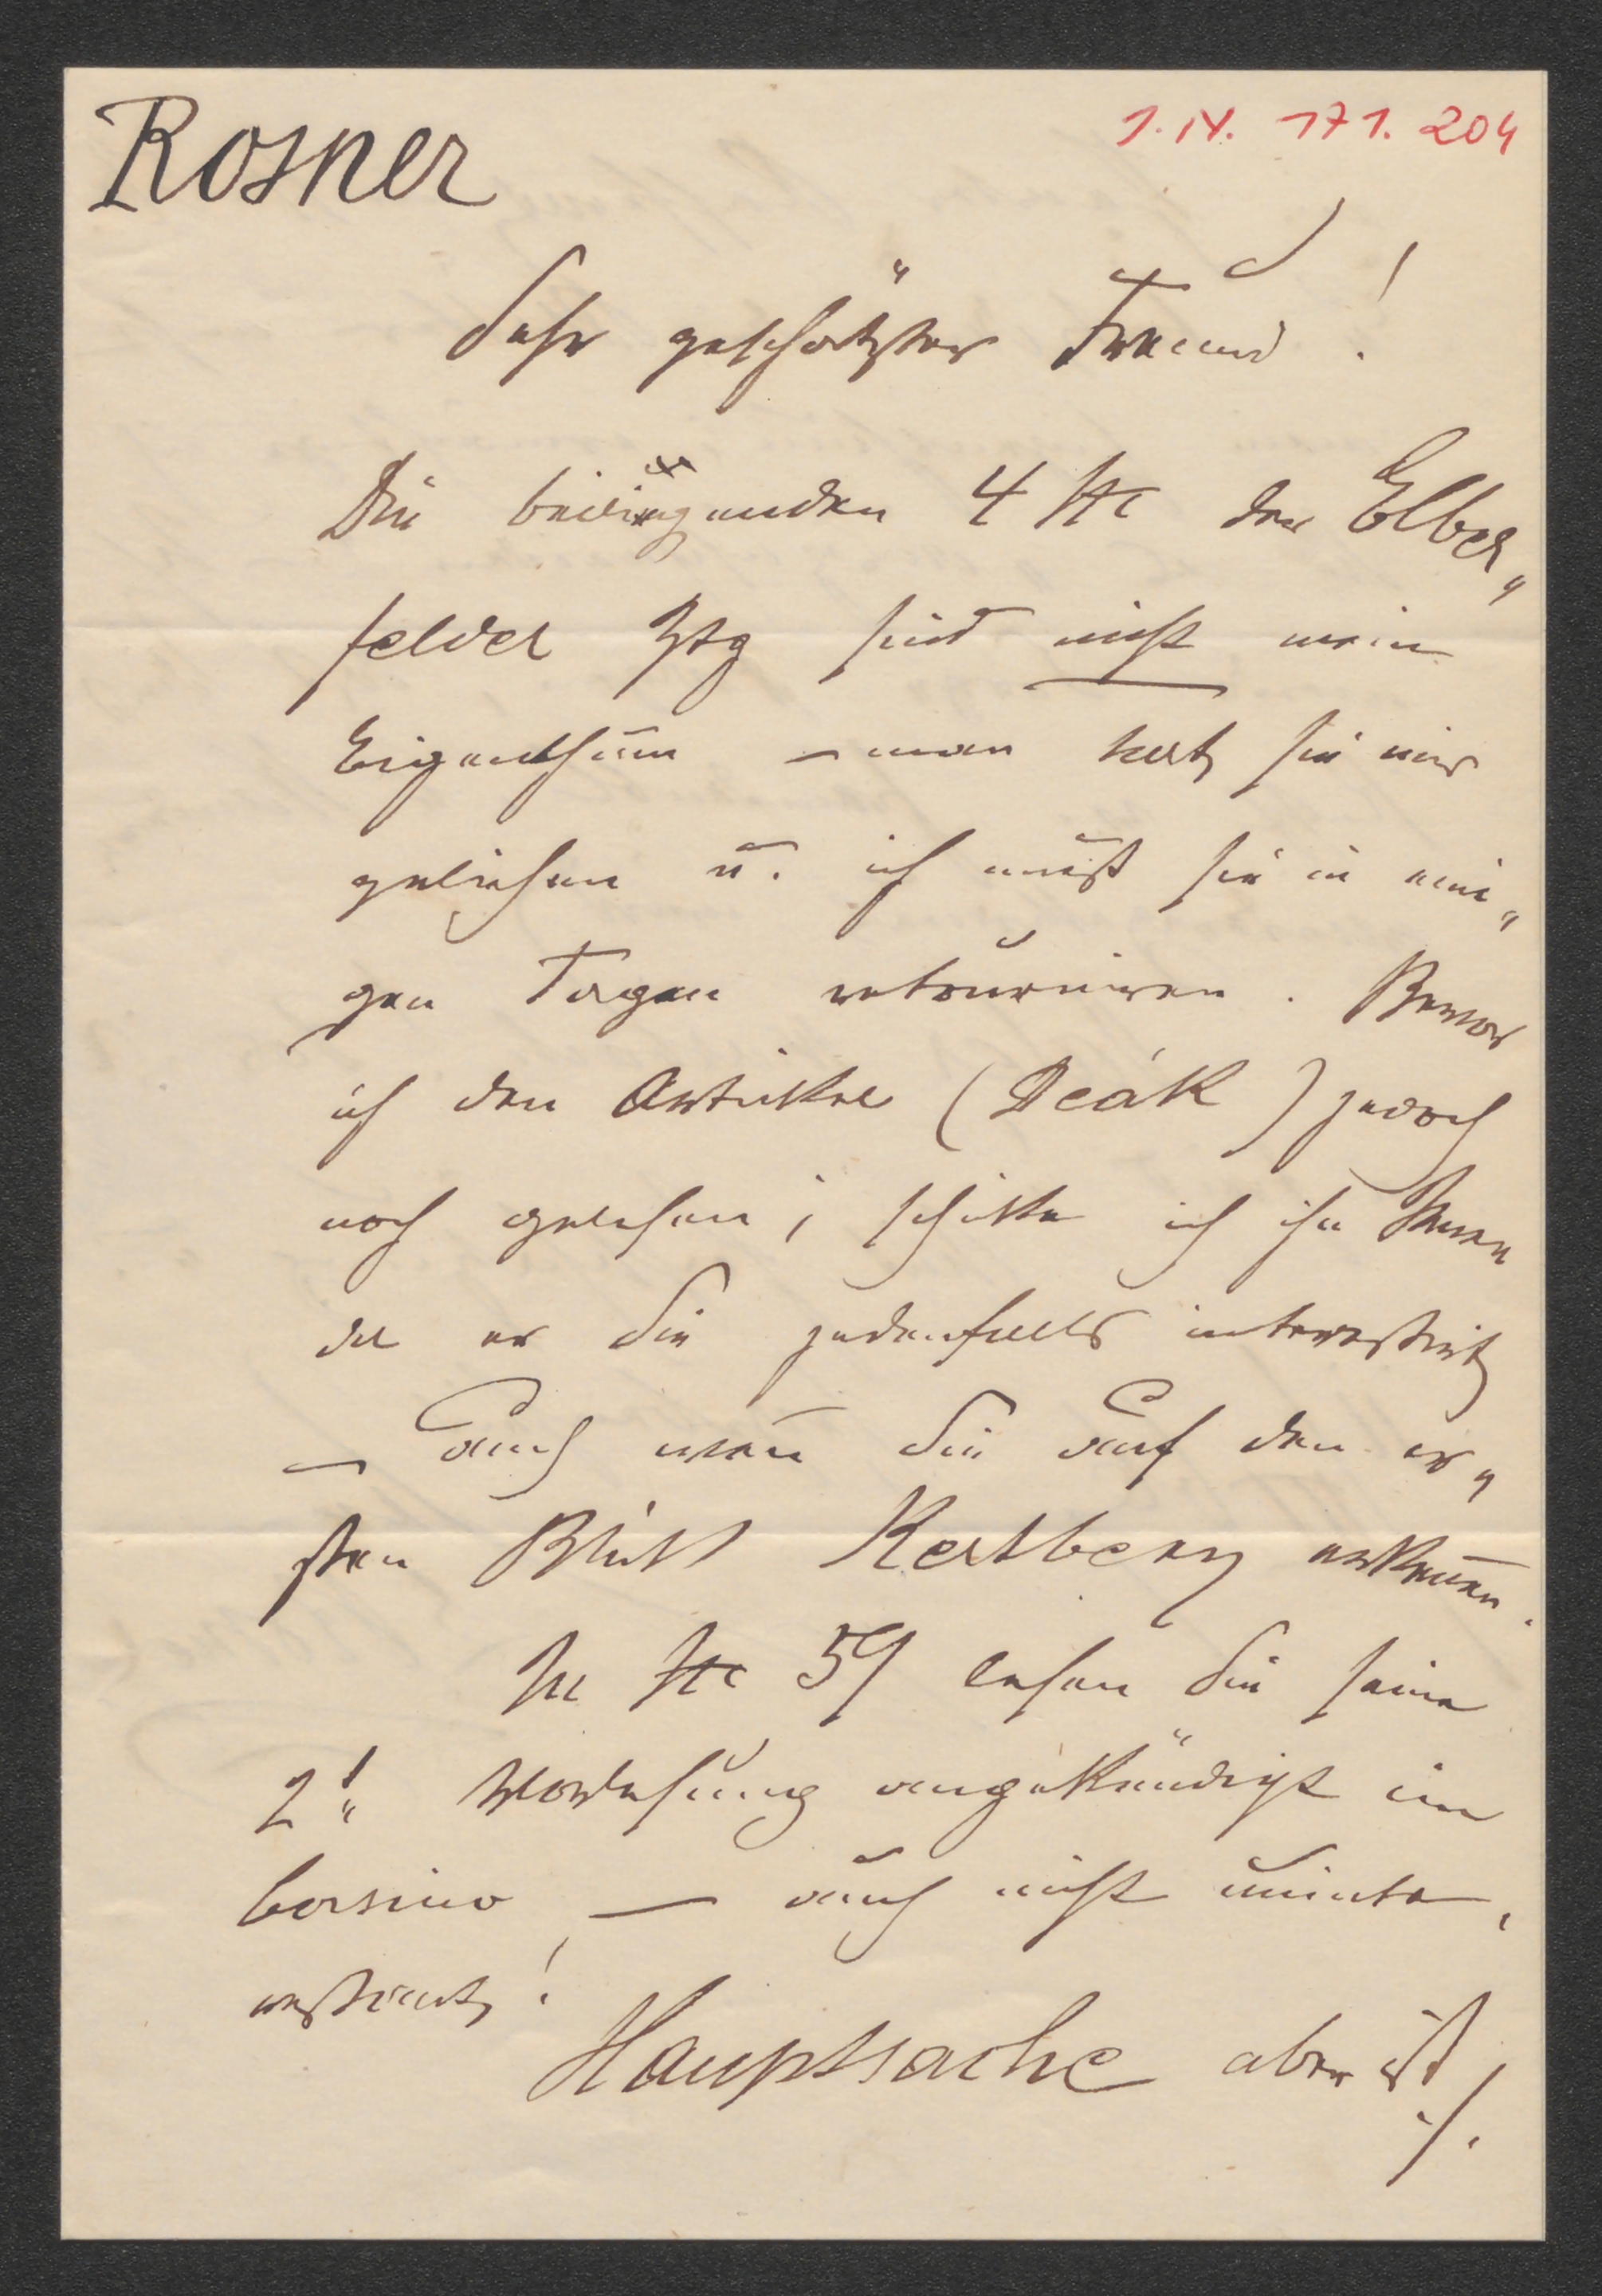 Rosner
1. IV. 171. 204
Sehr geschätzter Freund!
Die beiliegenden 4 Stk der Elber„
felder Ztg sind nicht mein
Eigenthum – man hat sie mir
geliehen u. ich muß sie in eini„
gen Tagen retourniren. Bevor
ich den Artikel (Deák) jedoch
noch gelesen, schike ich ihn Ihnen
da er Sie jedenfalls interessirt
– Auch wen̄ Sie auf den er„
sten Blick Kertbeny erken̄en.
In 59 lesen Sie seine
2t. Vorlesung angekündigt im
Casino – auch nicht uninte„
ressant!
Hauptsache aber ist
./.